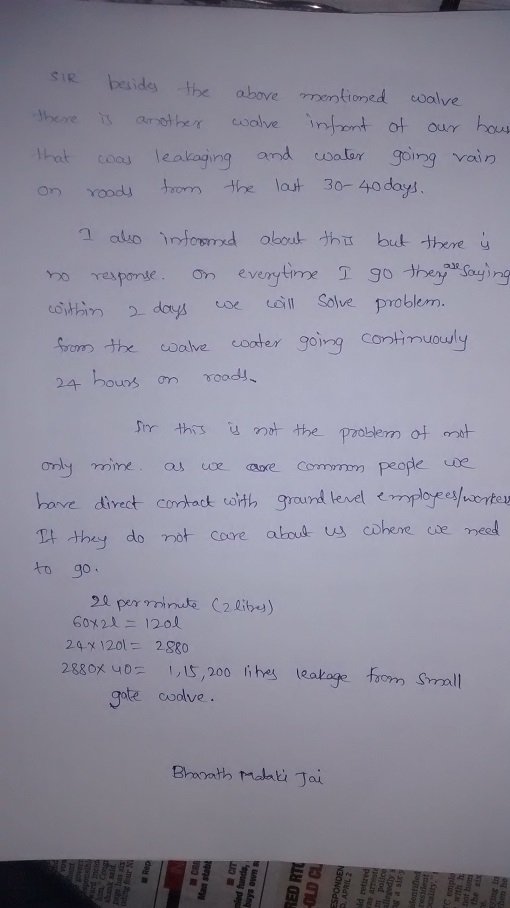 SIR besides the above mentioned walve
there is another walve infront of our hous
that was leakaging and water going vain
on roads from the last 30-40 days.
I also informed about this but there is
no response. on everytime I go they are saying
within 2 days we will solve problem.
from the walve water going continuously
24 hours on roads.
Sir this is not the problem of not
only mine. as we are common people we
have direct contact with ground level employees/workers
If they do not care about us where we need
to go.
2l per minute (2 litres)
60x2l = 120l
24x120l = 2880
2880x40= 1,15,200 litres leakage from small
gate walve.
Bharath Mataki Jai
RESPONDEN
NED RTC
OLD CL